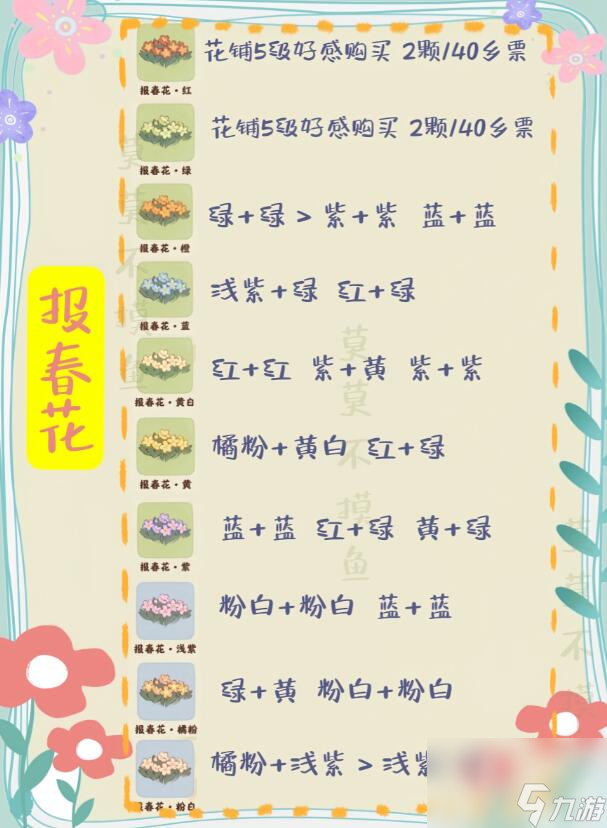 报春花
花铺5级好感购买 2颗/40乡票
报春花·红
花铺5级好感购买 2颗/40乡票
报春花·绿
绿+绿 > 紫+紫 蓝+蓝
报春花·橙
浅紫+绿 红+绿
报春花·蓝
红+红 紫+黄 紫+紫
报春花·黄白
橘粉+黄白 红+绿
报春花·黄
蓝+蓝 红+绿 黄+绿
报春花·紫
粉白+粉白 蓝+蓝
报春花·浅紫
绿+黄 粉白+粉白
报春花·橘粉
橘粉+浅紫 > 浅紫
报春花·粉白
莫莫不摸鱼
莫莫不摸鱼
九游